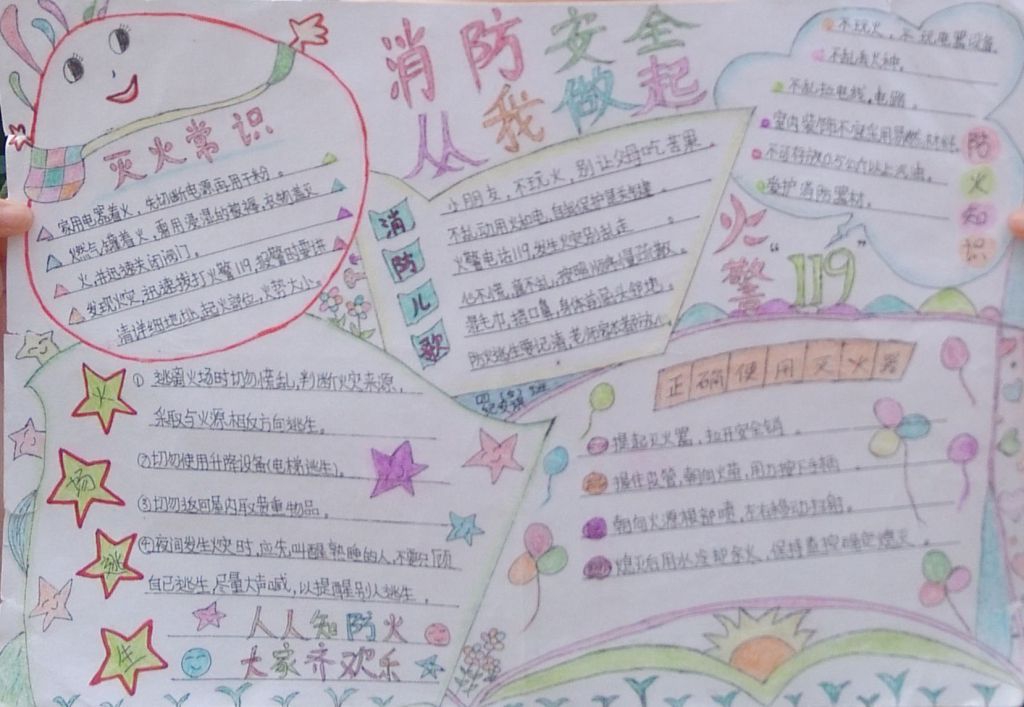 消防安全
从我做起
灭火常识
家用电器着火，先切断电源再用干粉。
燃气罐着火，要用浸湿的被褥，衣物盖灭
火，并迅速关闭阀门。
发现火灾，迅速拨打火警119，报警时要讲
清详细地址，起火部位，火势大小。
消防儿歌
小朋友，不玩火，别让父母吃苦果。
不乱动用火和电，自我保护是关键。
火警电话119，发生火灾别乱走
心不慌，腿不乱，按照顺序慢疏散。
湿毛巾，捂口鼻，身体前屈头邻地。
防火逃生要记清，老师家长都放心。
不玩火，不玩电器设备
不乱丢火种。
不乱拉电线，电路。
室内装饰不宜采用易燃材料。
不可存放0.5公斤以上汽油。
爱护消防器材。
防火知识
火警“119”
火场逃生
①逃离火场时切勿慌乱，判断火灾来源，
采取与火源相反方向逃生。
②切勿使用升降设备(电梯逃生)。
③切勿返回屋内取贵重物品。
④夜间发生火灾时，应先叫醒熟睡的人，不要只顾
自己逃生，尽量大声喊，以提醒别人逃生。
人人知防火
大家齐欢乐
正确使用灭火器
提起灭火器，拉开安全销。
握住皮管，朝向火苗，用力按下手柄。
朝向火源根部喷，左右移动扫射。
熄灭后用水冷却余火，保持监控确定熄灭。